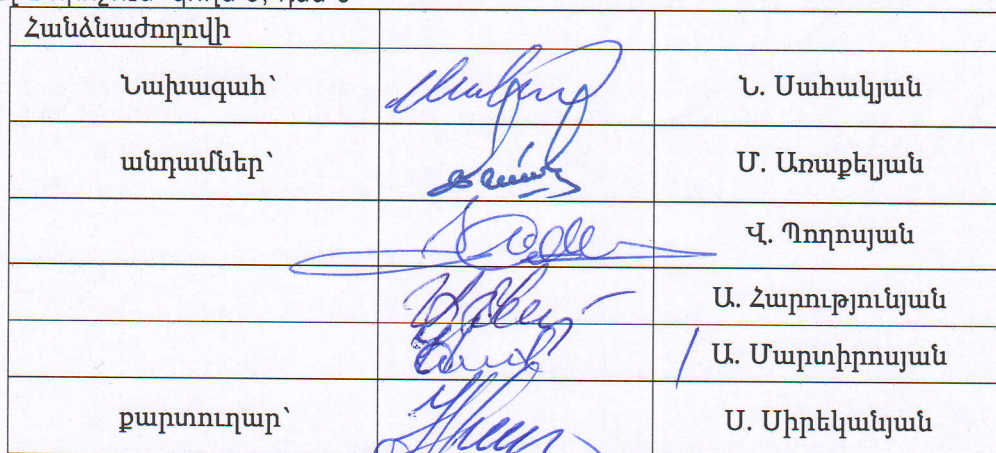 Հանձնաժողովի
Նախագահ՝ Ն. Սահակյան
անդամներ՝ Մ. Առաքելյան
Վ. Պողոսյան
Ա. Հարությունյան
Ա. Մարտիրոսյան
քարտուղար՝ Ս. Սիրեկանյան